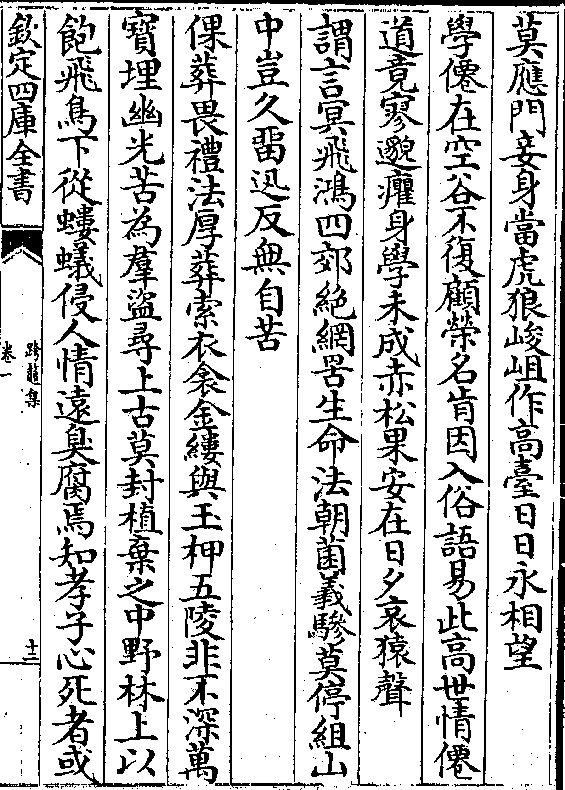 莫應門妾身當虎狼峻岨作高臺日日永相望
學僊在空谷不復顧榮名肯因入俗語易此高世情僊
道竟寥邈癯身學未成赤松果安在日夕哀猿聲
謂言冥飛鴻四郊絶網罟生命法朝菌義驂莫停組山
中豈久留迅反無自苦
倮葬畏禮法厚葬索衣衾金縷與玉柙五陵非不深萬
寶埋幽光苦為羣盜尋上古莫封植棄之中野林上以
飽飛鳥下從螻蟻侵人情遠臭腐焉知孝子心死者或
欽定四庫全書
卷一
十二